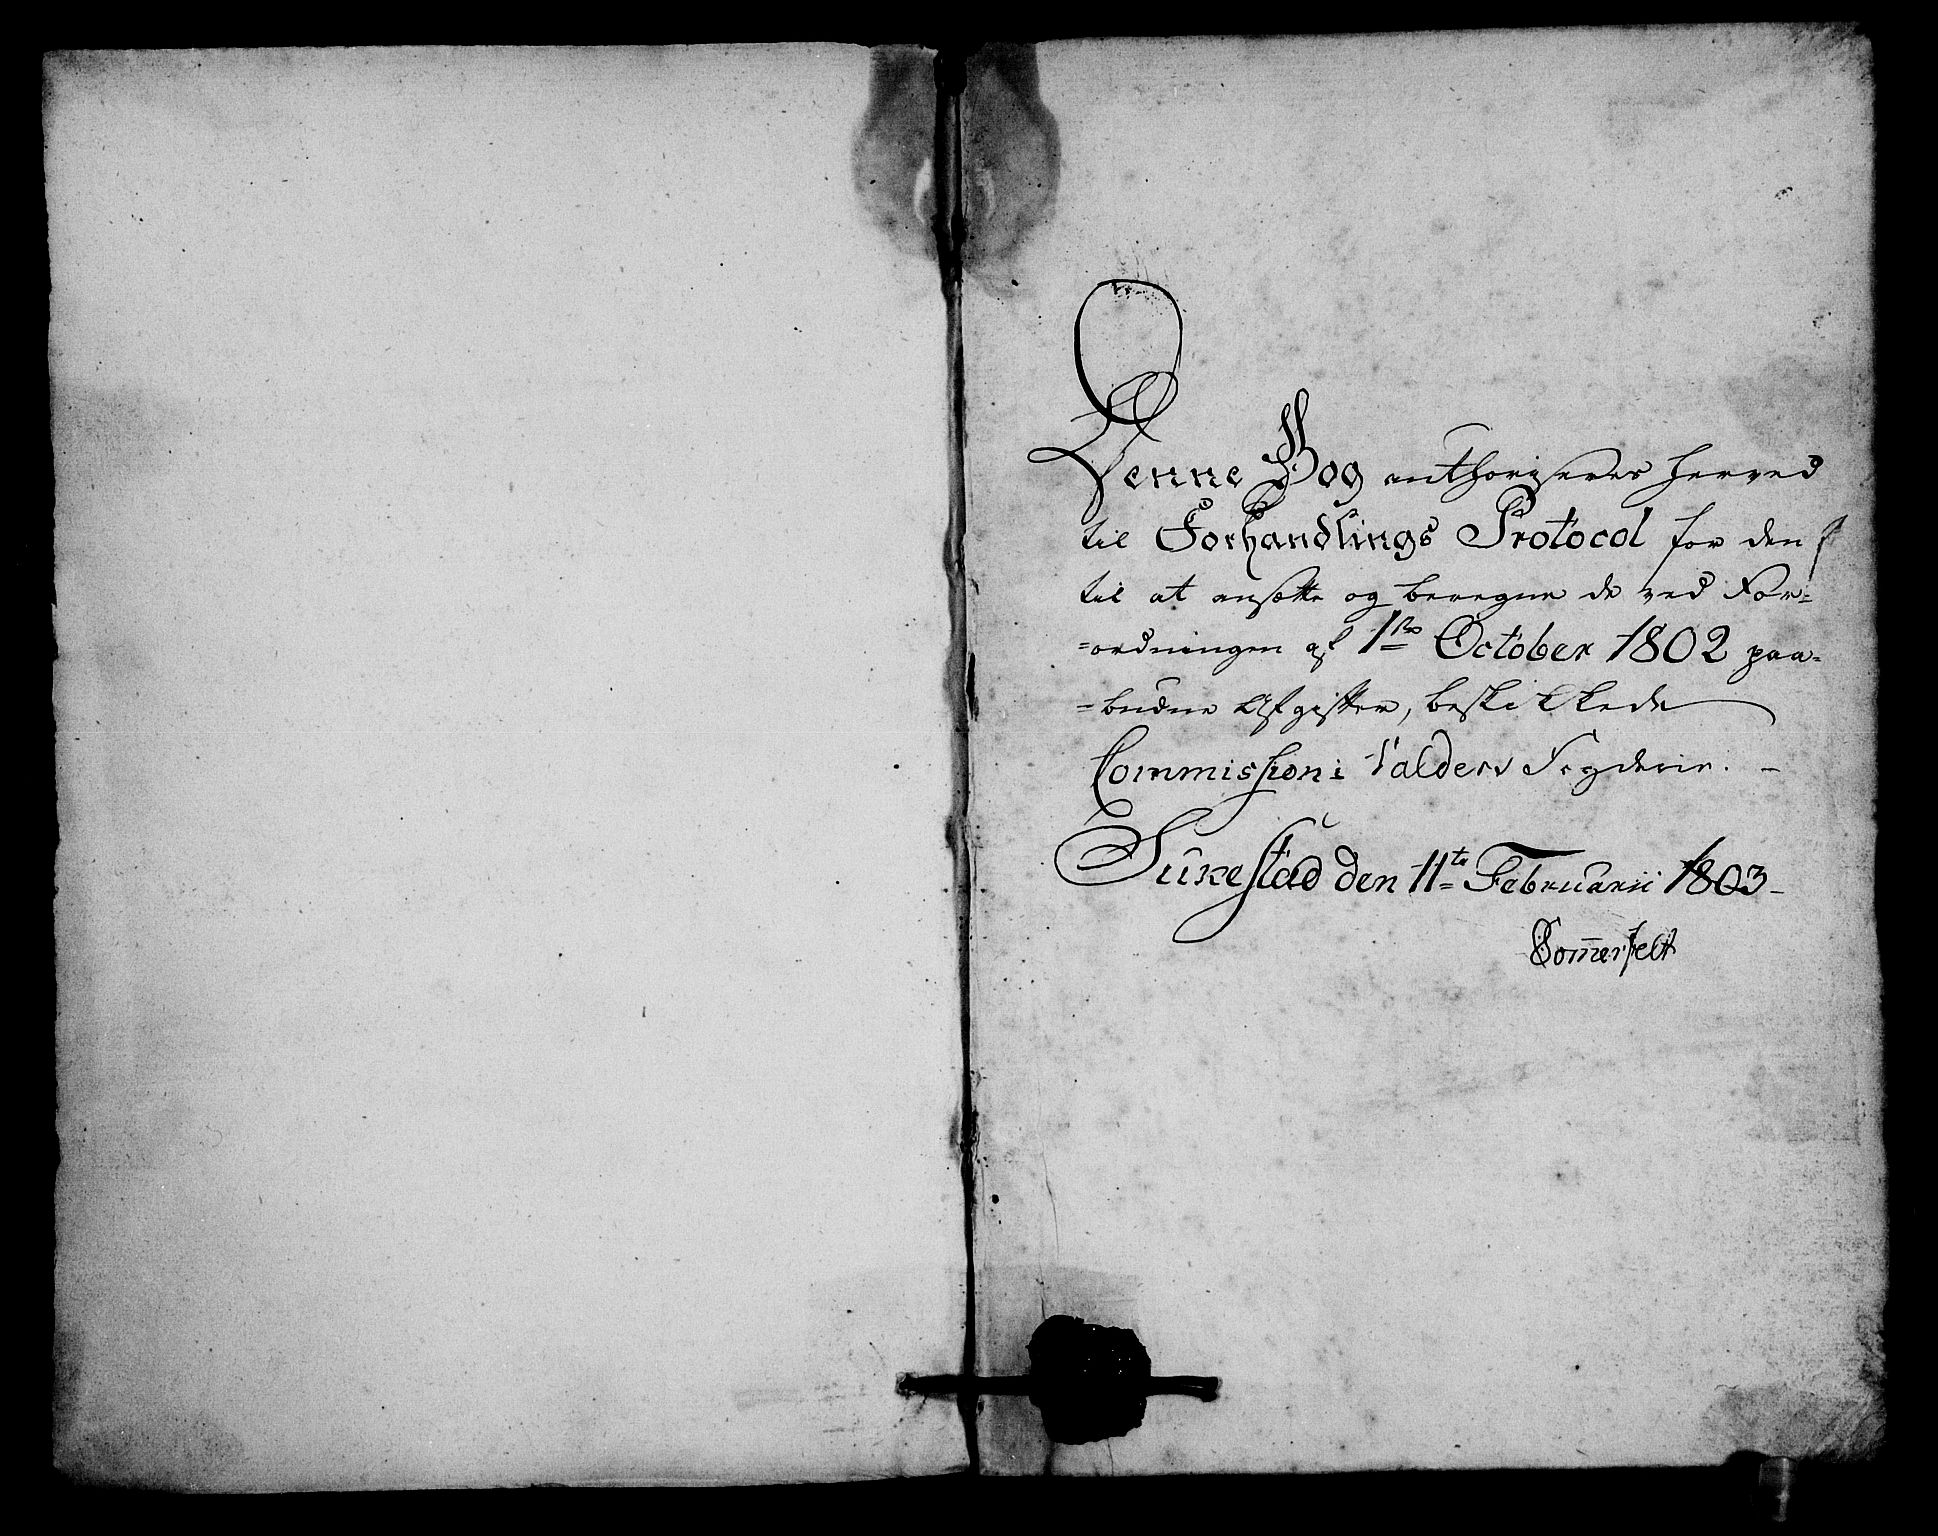 Denne Bog authoriseres herved
til Forhandlings Protocol for den
til at ansætte og beregne de ved For=
=ordningen af 1ste October 1802 paa=
=budne Afgifter, beskikkede
Commission i Valders Fogderie. -
Sukestad den 11te Februarii 1803-
Somerfelt